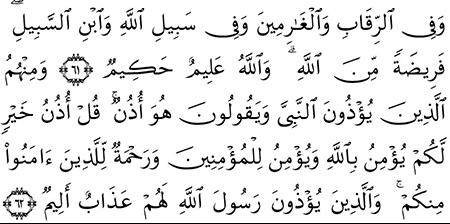 وَفِى ٱلرِّقَابِ وَٱلْغَٰرِمِينَ وَفِى سَبِيلِ ٱللَّهِ وَٱبْنِ ٱلسَّبِيلِ
فَرِيضَةً مِّنَ ٱللَّهِ ۗ وَٱللَّهُ عَلِيمٌ حَكِيمٌ ﴿٦١﴾ وَمِنْهُمُ
ٱلَّذِينَ يُؤْذُونَ ٱلنَّبِىَّ وَيَقُولُونَ هُوَ أُذُنٌ ۚ قُلْ أُذُنُ خَيْرٍ
لَّكُمْ يُؤْمِنُ بِٱللَّهِ وَيُؤْمِنُ لِلْمُؤْمِنِينَ وَرَحْمَةٌ لِّلَّذِينَ ءَامَنُوا۟
مِنكُمْ ۚ وَٱلَّذِينَ يُؤْذُونَ رَسُولَ ٱللَّهِ لَهُمْ عَذَابٌ أَلِيمٌ ﴿٦٢﴾